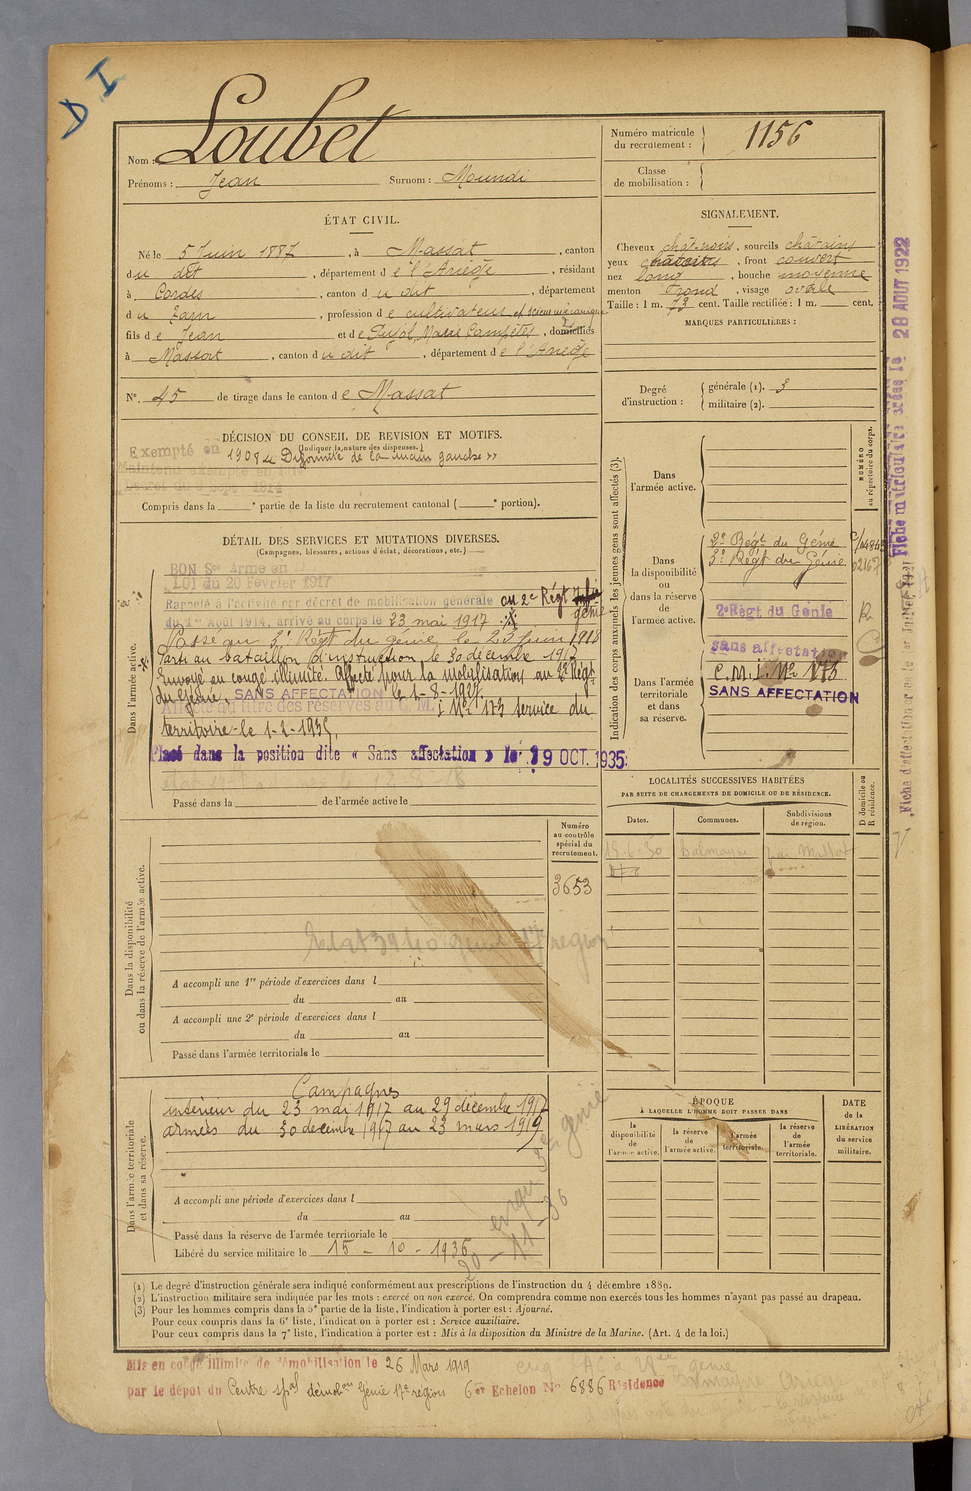 D I
Nom : Loubet
Prénoms : Jean Surnom : Moundi
Numéro matricule du recrutement : 1156
Classe de mobilisation :
ÉTAT CIVIL.
Né le 5 Juin 1887, à Massat, canton
du dit, département de l'Ariège, résidant
à Cordes, canton du dit, département
du Tarn, profession de cultivateur et
fils de Jean et de Pujol, Marie Campètes, domiciliés
à Massat, canton du dit, département de l'Ariège
N°. 45 de tirage dans le canton de Massat
SIGNALEMENT.
Cheveux chât-noirs, sourcils châtains
yeux, front couvert
nez long, bouche moyenne
menton rond, visage ovale
Taille : 1 m. 73 cent. Taille rectifiée : 1 m. cent.
MARQUES PARTICULIÈRES :
Degré d'instruction : générale (1). 3
militaire (2).
DÉCISION DU CONSEIL DE REVISION ET MOTIFS.
(Indiquer la nature des dispenses.)
Exempté en 1908 « Difformité de la main gauche »
Compris dans la e partie de la liste du recrutement cantonal ( e portion).
DÉTAIL DES SERVICES ET MUTATIONS DIVERSES.
(Campagnes, blessures, actions d'éclat, décorations, etc.)
Dans l'armée active.
BON Sce Armé en
LOI du 20 Février 1917
Rappelé à l'activité par décret de mobilisation générale au 2e Régt génie
du 1er Août 1914, arrivé au corps le 23 mai 1917
Passé au 3e Régt du génie le 23 Juin 1918
Parti au bataillon d'instruction le 30 décembre 1917
Envoyé en congé illimité. Affecté pour la mobilisation au 2e Régt
du Génie. SANS AFFECTATION le 1-8-1927.
Affecté au titre des réserves au C. M. I N° 173 service du
territoire le 1-2-1935.
Placé dans la position dite « Sans affectation » le 19 OCT. 1935
Passé dans la de l'armée active le
Indication des corps auxquels les jeunes gens sont affectés (3).
NUMÉRO au répertoire du corps.
Dans l'armée active.
Dans la disponibilité ou dans la réserve de l'armée active.
2e Régt du Génie
3e Régt du Génie
2e Régt du Génie
Dans l'armée territoriale et dans sa réserve.
sans affectation
C.M.I. N° 173
SANS AFFECTATION
Fiche matriculaire créée le 28 AOUT 1922
LOCALITÉS SUCCESSIVES HABITÉES
PAR SUITE DE CHANGEMENTS DE DOMICILE OU DE RÉSIDENCE.
Dates. Communes. Subdivisions de région. D domicile ou R résidence.
Dans la disponibilité ou dans la réserve de l'armée active.
Numéro au contrôle spécial du recrutement.
3653
A accompli une 1re période d'exercices dans l
du au
A accompli une 2e période d'exercices dans l
du au
Passé dans l'armée territoriale le
Dans l'armée territoriale et dans sa réserve.
Campagnes
intérieur du 23 mai 1917 au 29 décembre 1917
armées du 30 décembre 1917 au 23 mars 1919
A accompli une période d'exercices dans l
du au
Passé dans la réserve de l'armée territoriale le
Libéré du service militaire le 15 - 10 - 1936
ÉPOQUE
À LAQUELLE L'HOMME DOIT PASSER DANS
la disponibilité de l'armée active. la réserve de l'armée active. l'armée territoriale. la réserve de l'armée territoriale.
DATE de la LIBÉRATION du service militaire.
(1) Le degré d'instruction générale sera indiqué conformément aux prescriptions de l'instruction du 4 décembre 1889.
(2) L'instruction militaire sera indiquée par les mots : exercé ou non exercé. On comprendra comme non exercés tous les hommes n'ayant pas passé au drapeau.
(3) Pour les hommes compris dans la 5e partie de la liste, l'indication à porter est : Ajourné.
Pour ceux compris dans la 6e liste, l'indication à porter est : Service auxiliaire.
Pour ceux compris dans la 7e liste, l'indication à porter est : Mis à la disposition du Ministre de la Marine. (Art. 4 de la loi.)
Mis en congé illimité de démobilisation le 26 Mars 1919
par le dépôt du Centre spal démobon Génie 17e région 6e Echelon N° 6886 Résidence